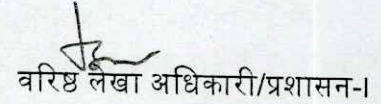 वरिष्ठ लेखा अधिकारी/प्रशासन-I